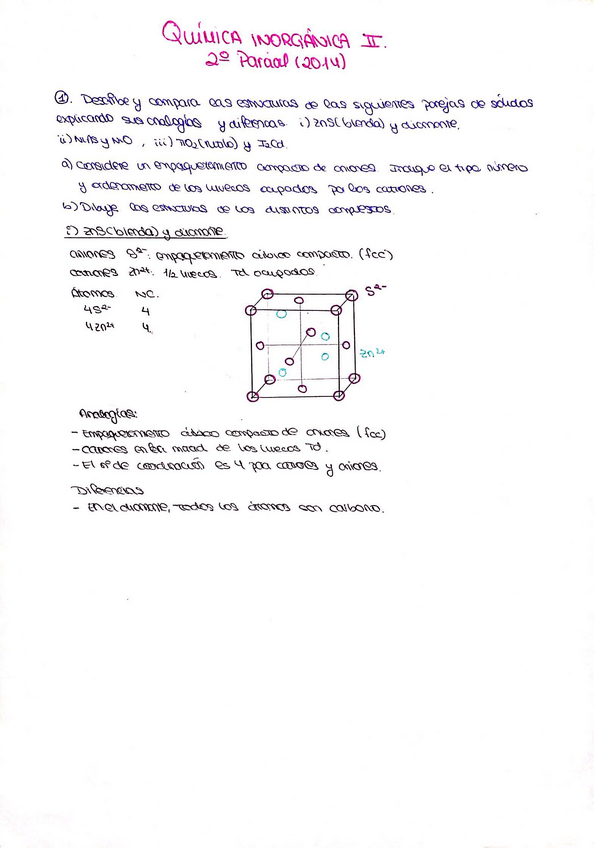 QUÍMICA INORGÁNICA II.
2º Parcial (2014)
①. Describe y compara las estructuras de las siguientes parejas de sólidos
explicando sus analogías y diferencias. i) ZnS (blenda) y diamante,
ii) NiAs y NiO, iii) TiO₂ (rutilo) y I₂Cd.
a) Considere un empaquetamiento compacto de aniones. Indique el tipo, número
y ordenamiento de los huecos ocupados por los cationes.
b) Dibuje las estructuras de los distintos compuestos.
i) ZnS (blenda) y diamante.
aniones S²⁻: empaquetamiento cúbico compacto. (fcc)
cationes Zn²⁺: 1/2 huecos Td ocupados
Átomos NC.
4S²⁻ 4
4Zn²⁺ 4
S²⁻
Zn²⁺
Analogías:
- Empaquetamiento cúbico compacto de aniones (fcc)
- cationes en la mitad de los huecos Td.
- El nº de coordinación es 4 para cationes y aniones.
Diferencias
- En el diamante, todos los átomos son carbono.